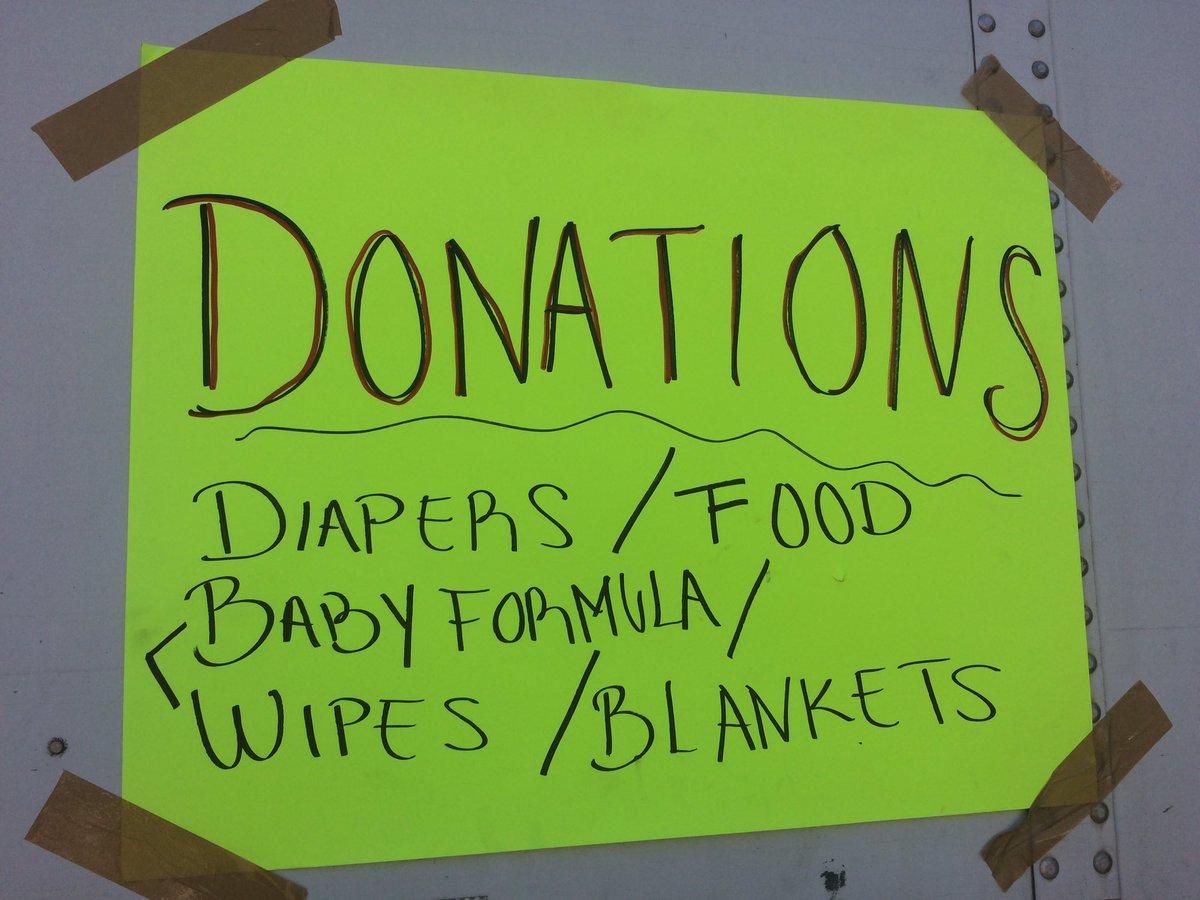 DONATIONS
DIAPERS / FOOD
BABY FORMULA /
WIPES / BLANKETS